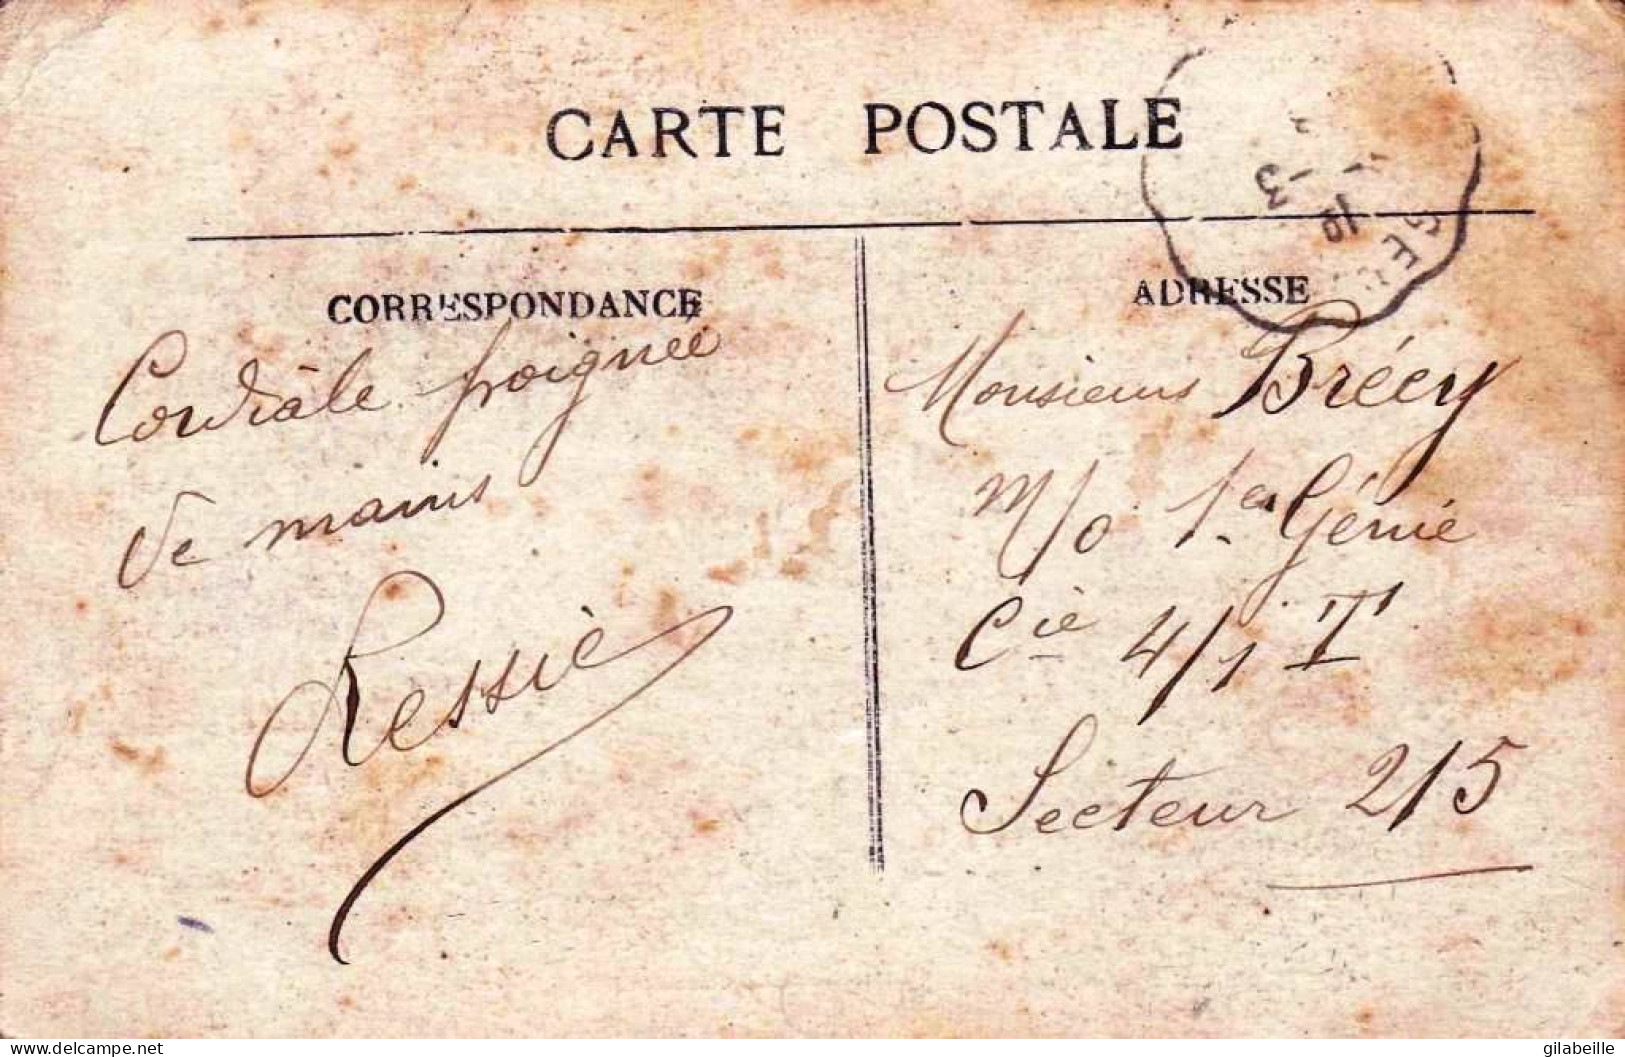 CARTE POSTALE
CORRESPONDANCE
Cordiale poignée
de mains
Ressiè
ADRESSE
Monsieur Brécy
M/o 1er Génie
Cie 4/1 T
Secteur 215
delcampe.net
gilabeille